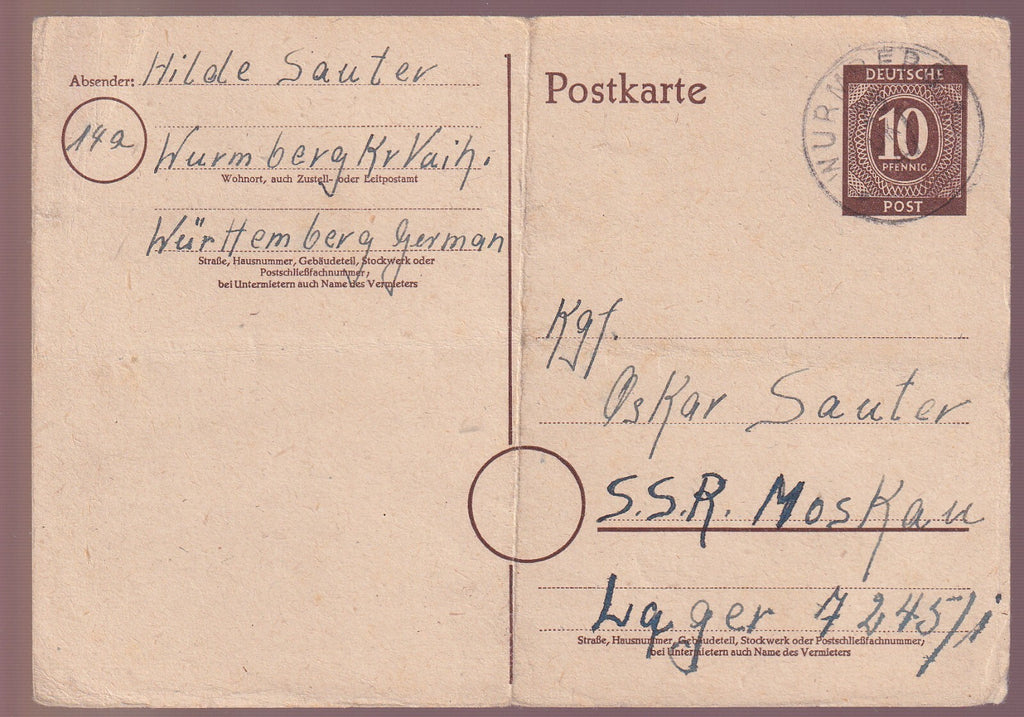 Absender: Hilde Sauter
14a
Wurmberg Kr Vaih.
Wohnort, auch Zustell- oder Leitpostamt
Württemberg German
Straße, Hausnummer, Gebäudeteil, Stockwerk oder
Postschließfachnummer;
bei Untermietern auch Name des Vermieters
Postkarte
DEUTSCHE
10
PFENNIG
POST
WURMBERG
Kgf.
Oskar Sauter
S.S.R. Moskau
Lager 7245/i
Straße, Hausnummer, Gebäudeteil, Stockwerk oder Postschließfachnummer;
bei Untermietern auch Name des Vermieters